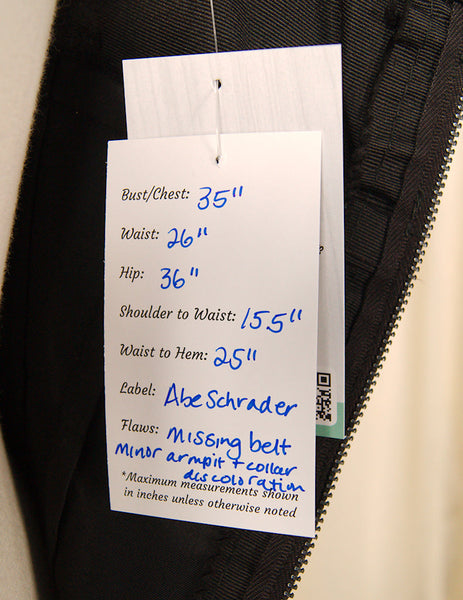 Bust/Chest: 35"
Waist: 26"
Hip: 36"
Shoulder to Waist: 15.5"
Waist to Hem: 25"
Label: Abe Schrader
Flaws: Missing belt
Minor armpit + collar
discoloration
*Maximum measurements shown
in inches unless otherwise noted
?